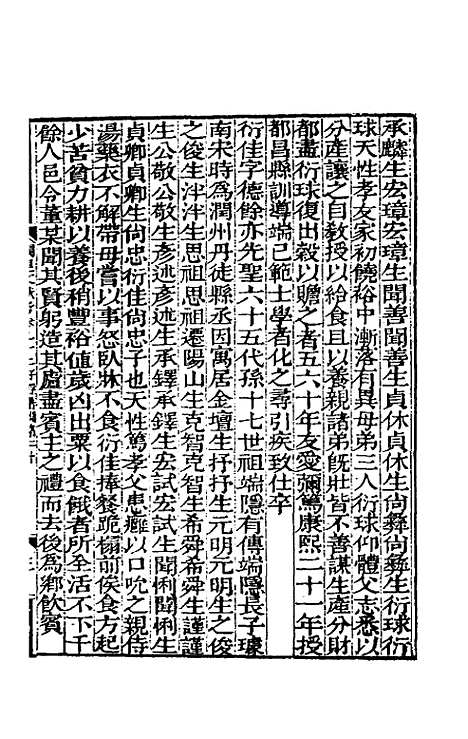 承麟生宏璋宏璋生聞善聞善生貞休貞休生尙彝尙彝生衍球衍
球天性孝友家初饒裕中漸落有異母弟三人衍球仰體父志悉以
分產讓之自教授以給食且以養親諸弟旣壯皆不善謀生產分財
都盡衍球復出穀以贍之者五六十年友愛彌篤康熙二十一年授
都昌縣訓導端己範士學者化之尋引疾致仕卒
衍佳字德餘亦先聖六十五代孫十七世祖端隱有傳端隱長子璩
南宋時爲潤州丹徒縣丞因寓居金壇生抒抒生元明元明生之俊
之俊生泮泮生思祖思祖遷陽山生克智克智生希舜希舜生謹謹
生公敬公敬生彥述彥述生承鐸承鐸生宏試宏試生聞悧聞悧生
貞卿貞卿生尙忠衍佳尙忠子也天性篤孝父患癰以口吮之親侍
湯藥衣不解帶母嘗以事怒臥牀不食衍佳捧餐跪榻前俟食方起
少苦貧力耕以養後稍豐裕値歲凶出粟以食餓者所全活不下千
餘人邑令董某聞其賢躬造其廬盡賓主之禮而去後爲鄉飮賓